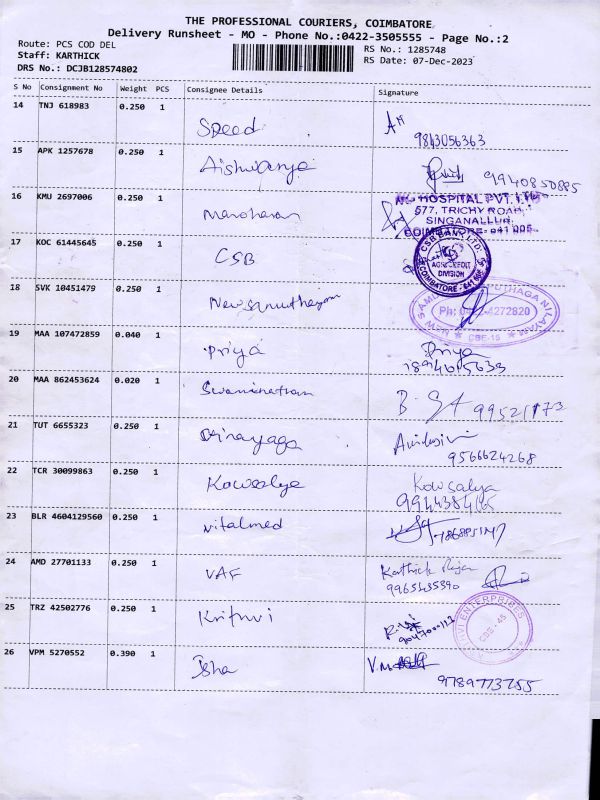 THE PROFESSIONAL COURIERS, COIMBATORE
Delivery Runsheet - MO - Phone No.:0422-3505555 - Page No.:2
Route: PCS COD DEL
RS No.: 1285748
Staff: KARTHICK
RS Date: 07-Dec-2023
DRS No.: DCJB128574802
S No Consignment No Weight PCS Consignee Details Signature
14 TNJ 618983 0.250 1
Speed
9843056363
15 APK 1257678 0.250 1
Aishwarya
9940850885
16 KMU 2697006 0.250 1
Manoharan
HOSPITAL PVT. LTD
577, TRICHY ROAD,
SINGANALLUR,
COIMBATORE - 641 005
17 KOC 61445645 0.250 1
CSB
CSB BANK LTD.
AGRI CREDIT
DIVISION
COIMBATORE - 641
18 SVK 10451479 0.250 1
4272820
CBE-15
19 MAA 107472859 0.040 1
Priya
Priya
20 MAA 862453624 0.020 1
Swaminathan
B.
21 TUT 6655323 0.250 1
Vinayaga
9566624268
22 TCR 30099863 0.250 1
Kowsalya
Kowsalya
23 BLR 4604129560 0.250 1
Vitalmed
24 AMD 27701133 0.250 1
VAF
Karthick Raja
9965435390
25 TRZ 42502776 0.250 1
ENTERPRISES
CBE-45
26 VPM 5270552 0.390 1
Isha
9789773755